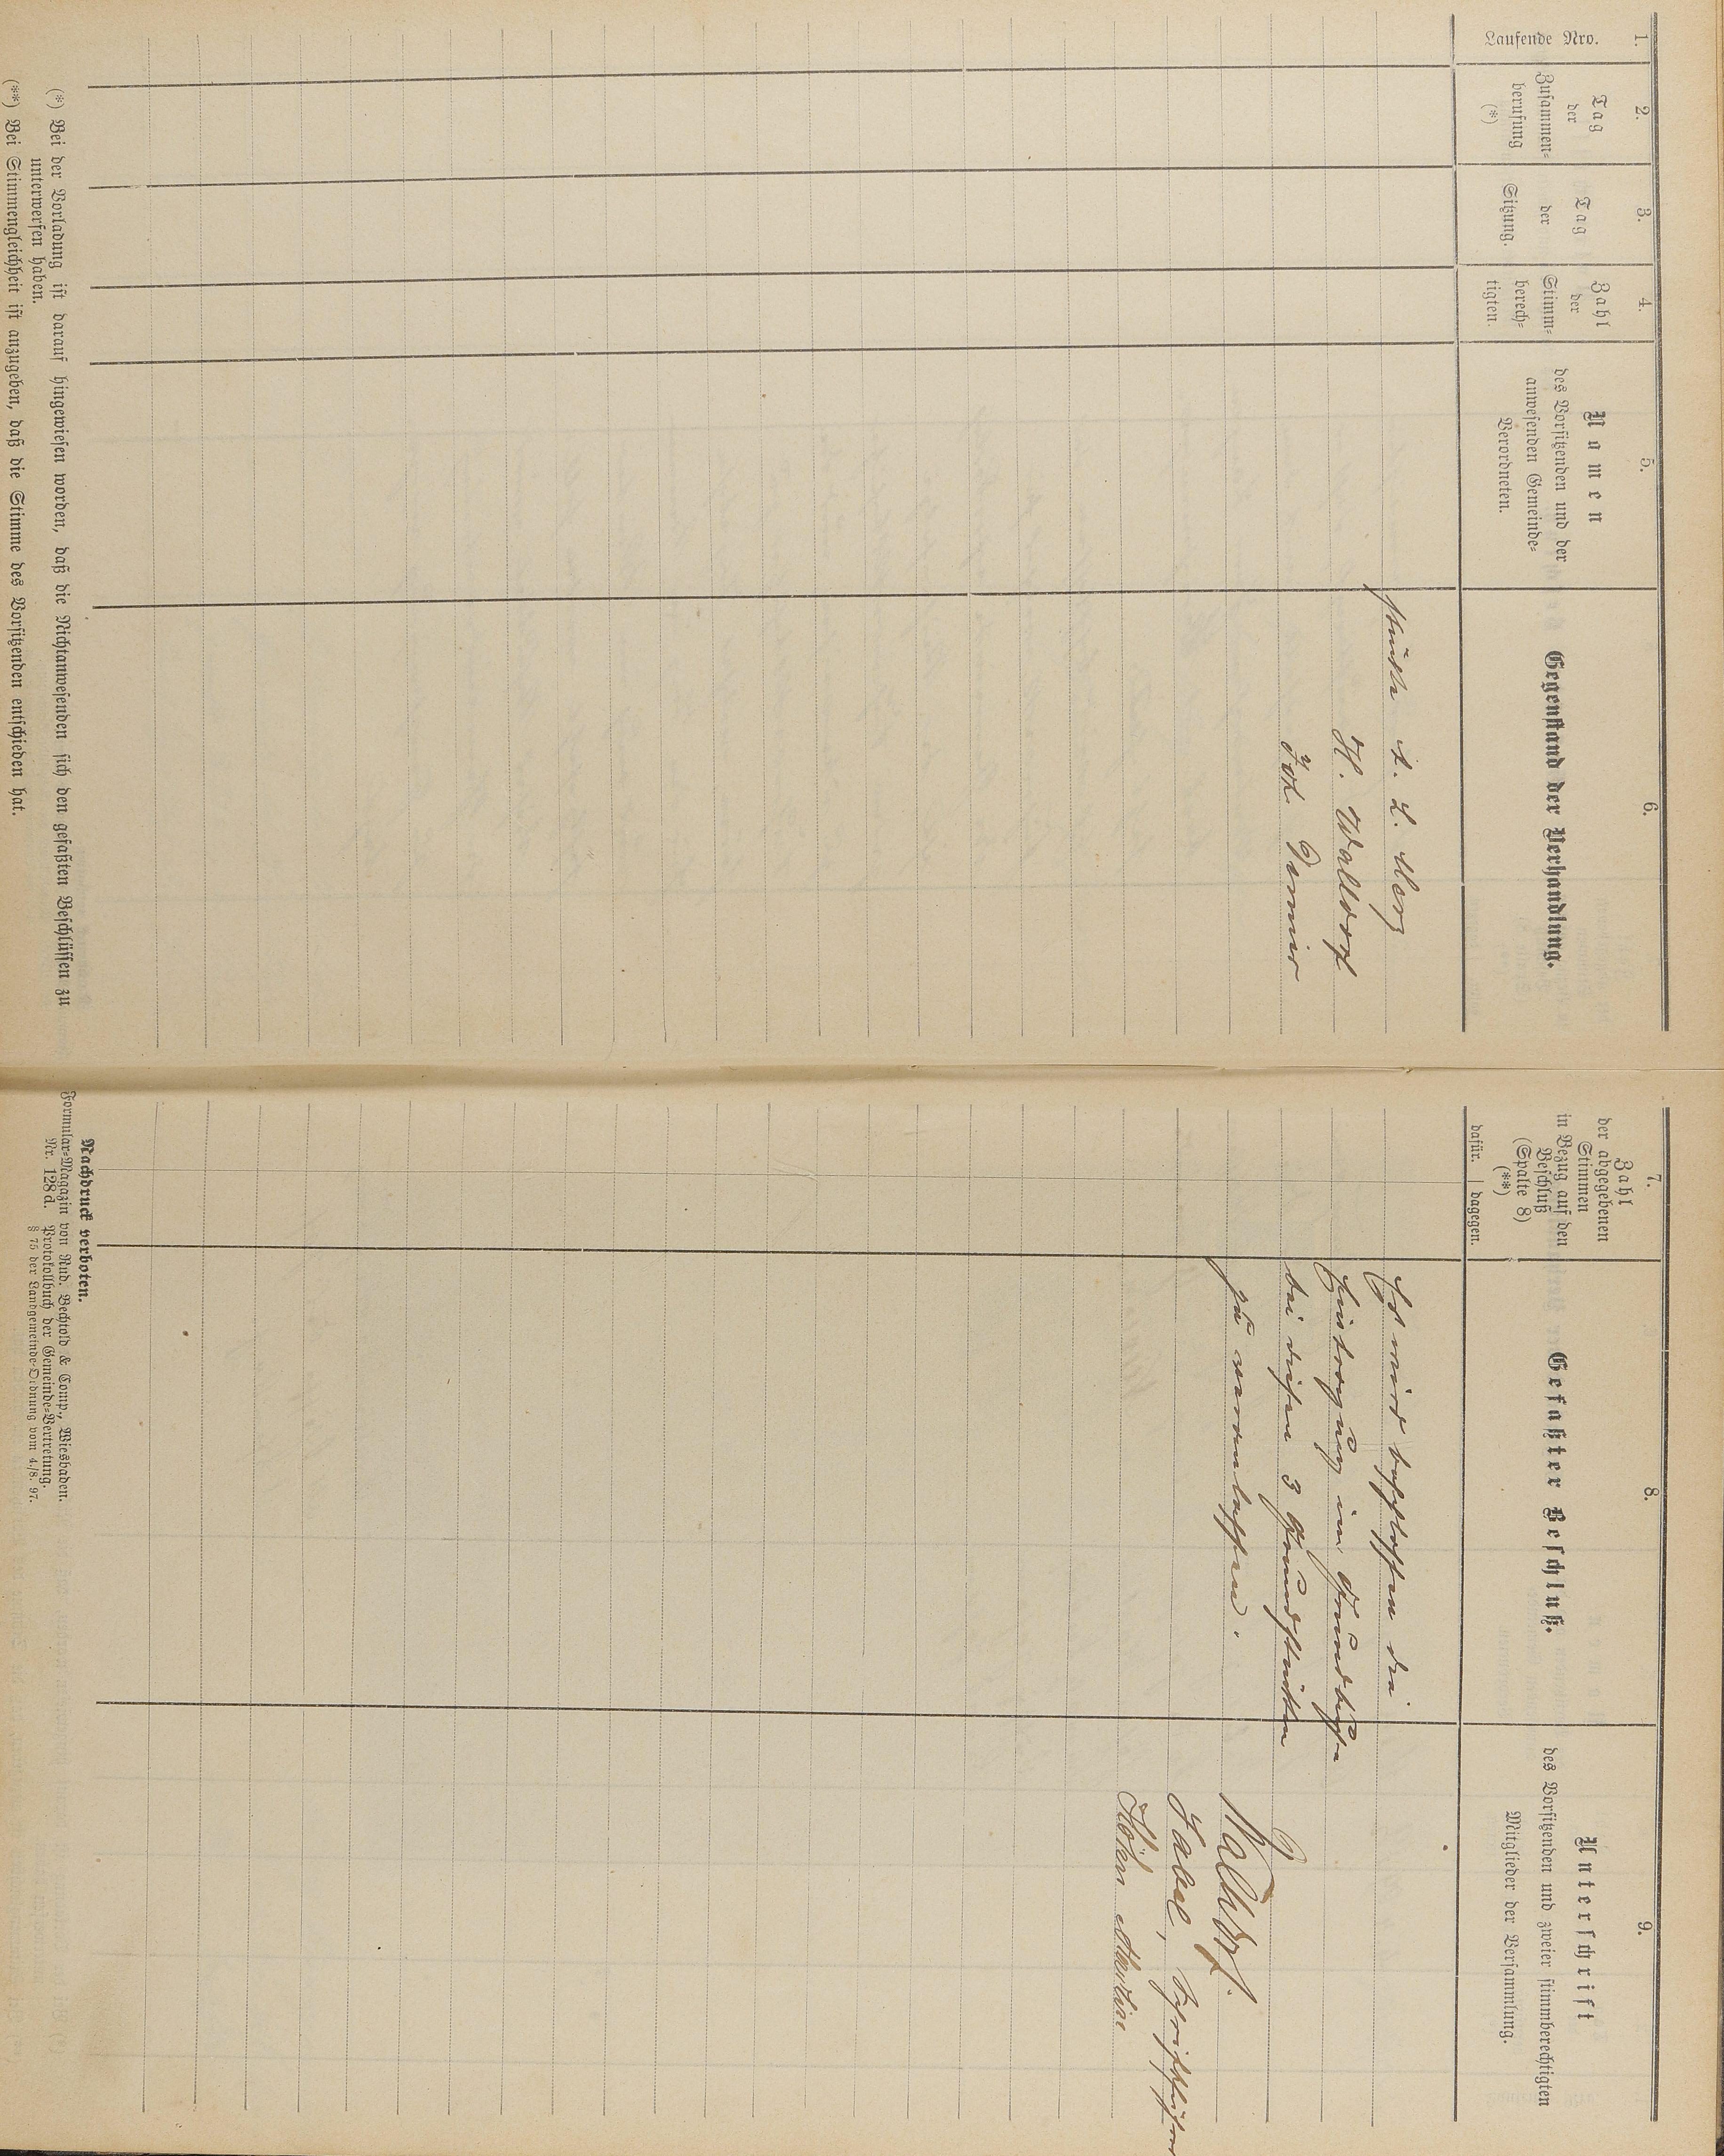 1.
Laufende Nro.
2.
Tag
der
Zusammen-
berufung
(*)
3.
Tag
der
Sitzung.
4.
Zahl
der
Stimm-
berech-
tigten.
5.
Namen
des Vorsitzenden und der
anwesenden Gemeinde-
Verordneten.
6.
Gegenstand der Verhandlung.
stücke d. L. Merz
H. Walldorf
Joh
7.
Zahl
der abgegebenen
Stimmen
in Bezug auf den
Beschluß
(Spalte 8)
(**)
dafür. dagegen.
8.
Gefaßter Beschluß.
Es wird beschlossen die
Eintragung im Grundbuche
bei diesen 3 Grundstücken
zu veranlassen.
9.
Unterschrift
des Vorsitzenden und zweier stimmberechtigten
Mitglieder der Versammlung.
Walldorf.
Zabel, Schriftführer
Martin
(*) Bei der Vorladung ist darauf hingewiesen worden, daß die Nichtanwesenden sich den gefaßten Beschlüssen zu
unterwerfen haben.
(**) Bei Stimmengleichheit ist anzugeben, daß die Stimme des Vorsitzenden entschieden hat.
Nachdruck verboten.
Formular-Magazin von Rud. Bechtold & Comp., Wiesbaden.
Nr. 128d. Protokollbuch der Gemeinde-Vertretung.
§ 75 der Landgemeinde-Ordnung vom 4./8. 97.